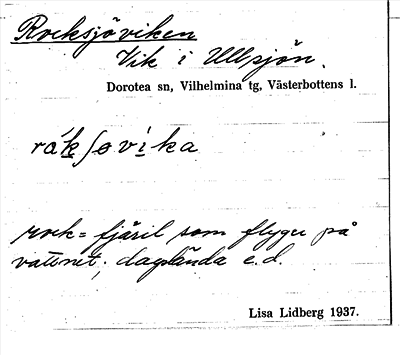 Rocksjöviken
Vik i Ullsjön.
Dorotea sn, Vilhelmina tg, Västerbottens l.
råk ʃøvika
rock = fjäril som flyger på
vattnet, dagslända e.d.
Lisa Lidberg 1937.